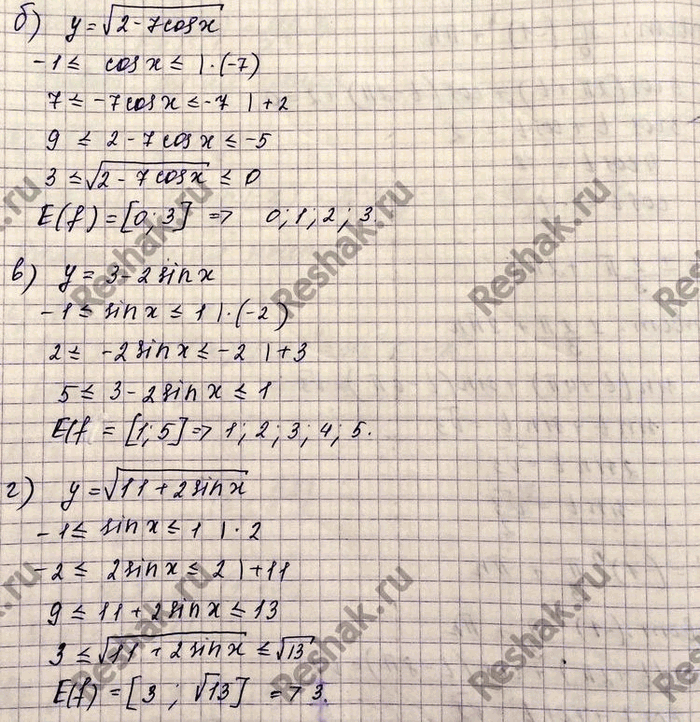 б) y = √(2 - 7cosx)
-1 ≤ cosx ≤ | ·(-7)
7 ≤ -7cosx ≤ -7 | +2
9 ≤ 2 - 7cosx ≤ -5
3 ≤ √(2 - 7cosx) ≤ 0
E(f) = [0; 3] => 0; 1; 2; 3.
в) y = 3 - 2sinx
-1 ≤ sinx ≤ 1 | ·(-2)
2 ≤ -2sinx ≤ -2 | +3
5 ≤ 3 - 2sinx ≤ 1
E(f = [1; 5] => 1; 2; 3; 4; 5.
г) y = √(11 + 2sinx)
-1 ≤ sinx ≤ 1 | · 2
-2 ≤ 2sinx ≤ 2 | +11
9 ≤ 11 + 2sinx ≤ 13
3 ≤ √(11 + 2sinx) ≤ √13
E(f) = [3 ; √13] => 3.
Reshak.ru
Reshak.ru
Reshak.ru
Reshak.ru
Reshak.ru
Reshak.ru